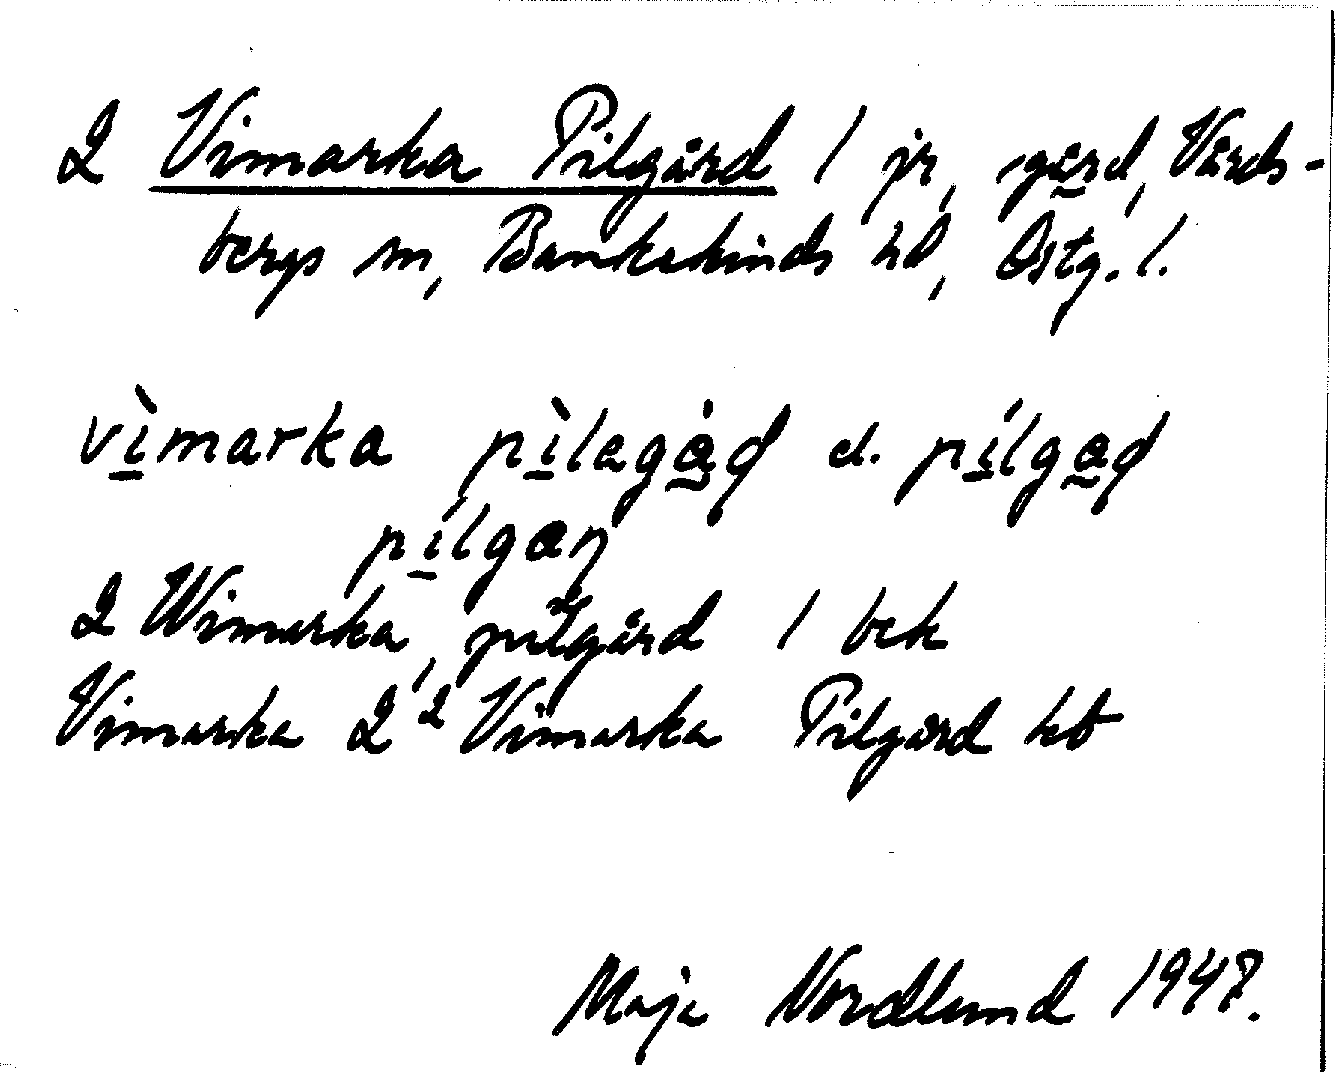 2 Vimarka Pilgård / jr, gård, Vårds-
bergs sn, Bankekinds hd, Östg. l.
vìmarka pìlagåd el. pílgåd
pílgan
2 Wimarka, pilgård / bek
Vimarka 2² Vimarka Pilgård kb
Maja Nordlund 1947.